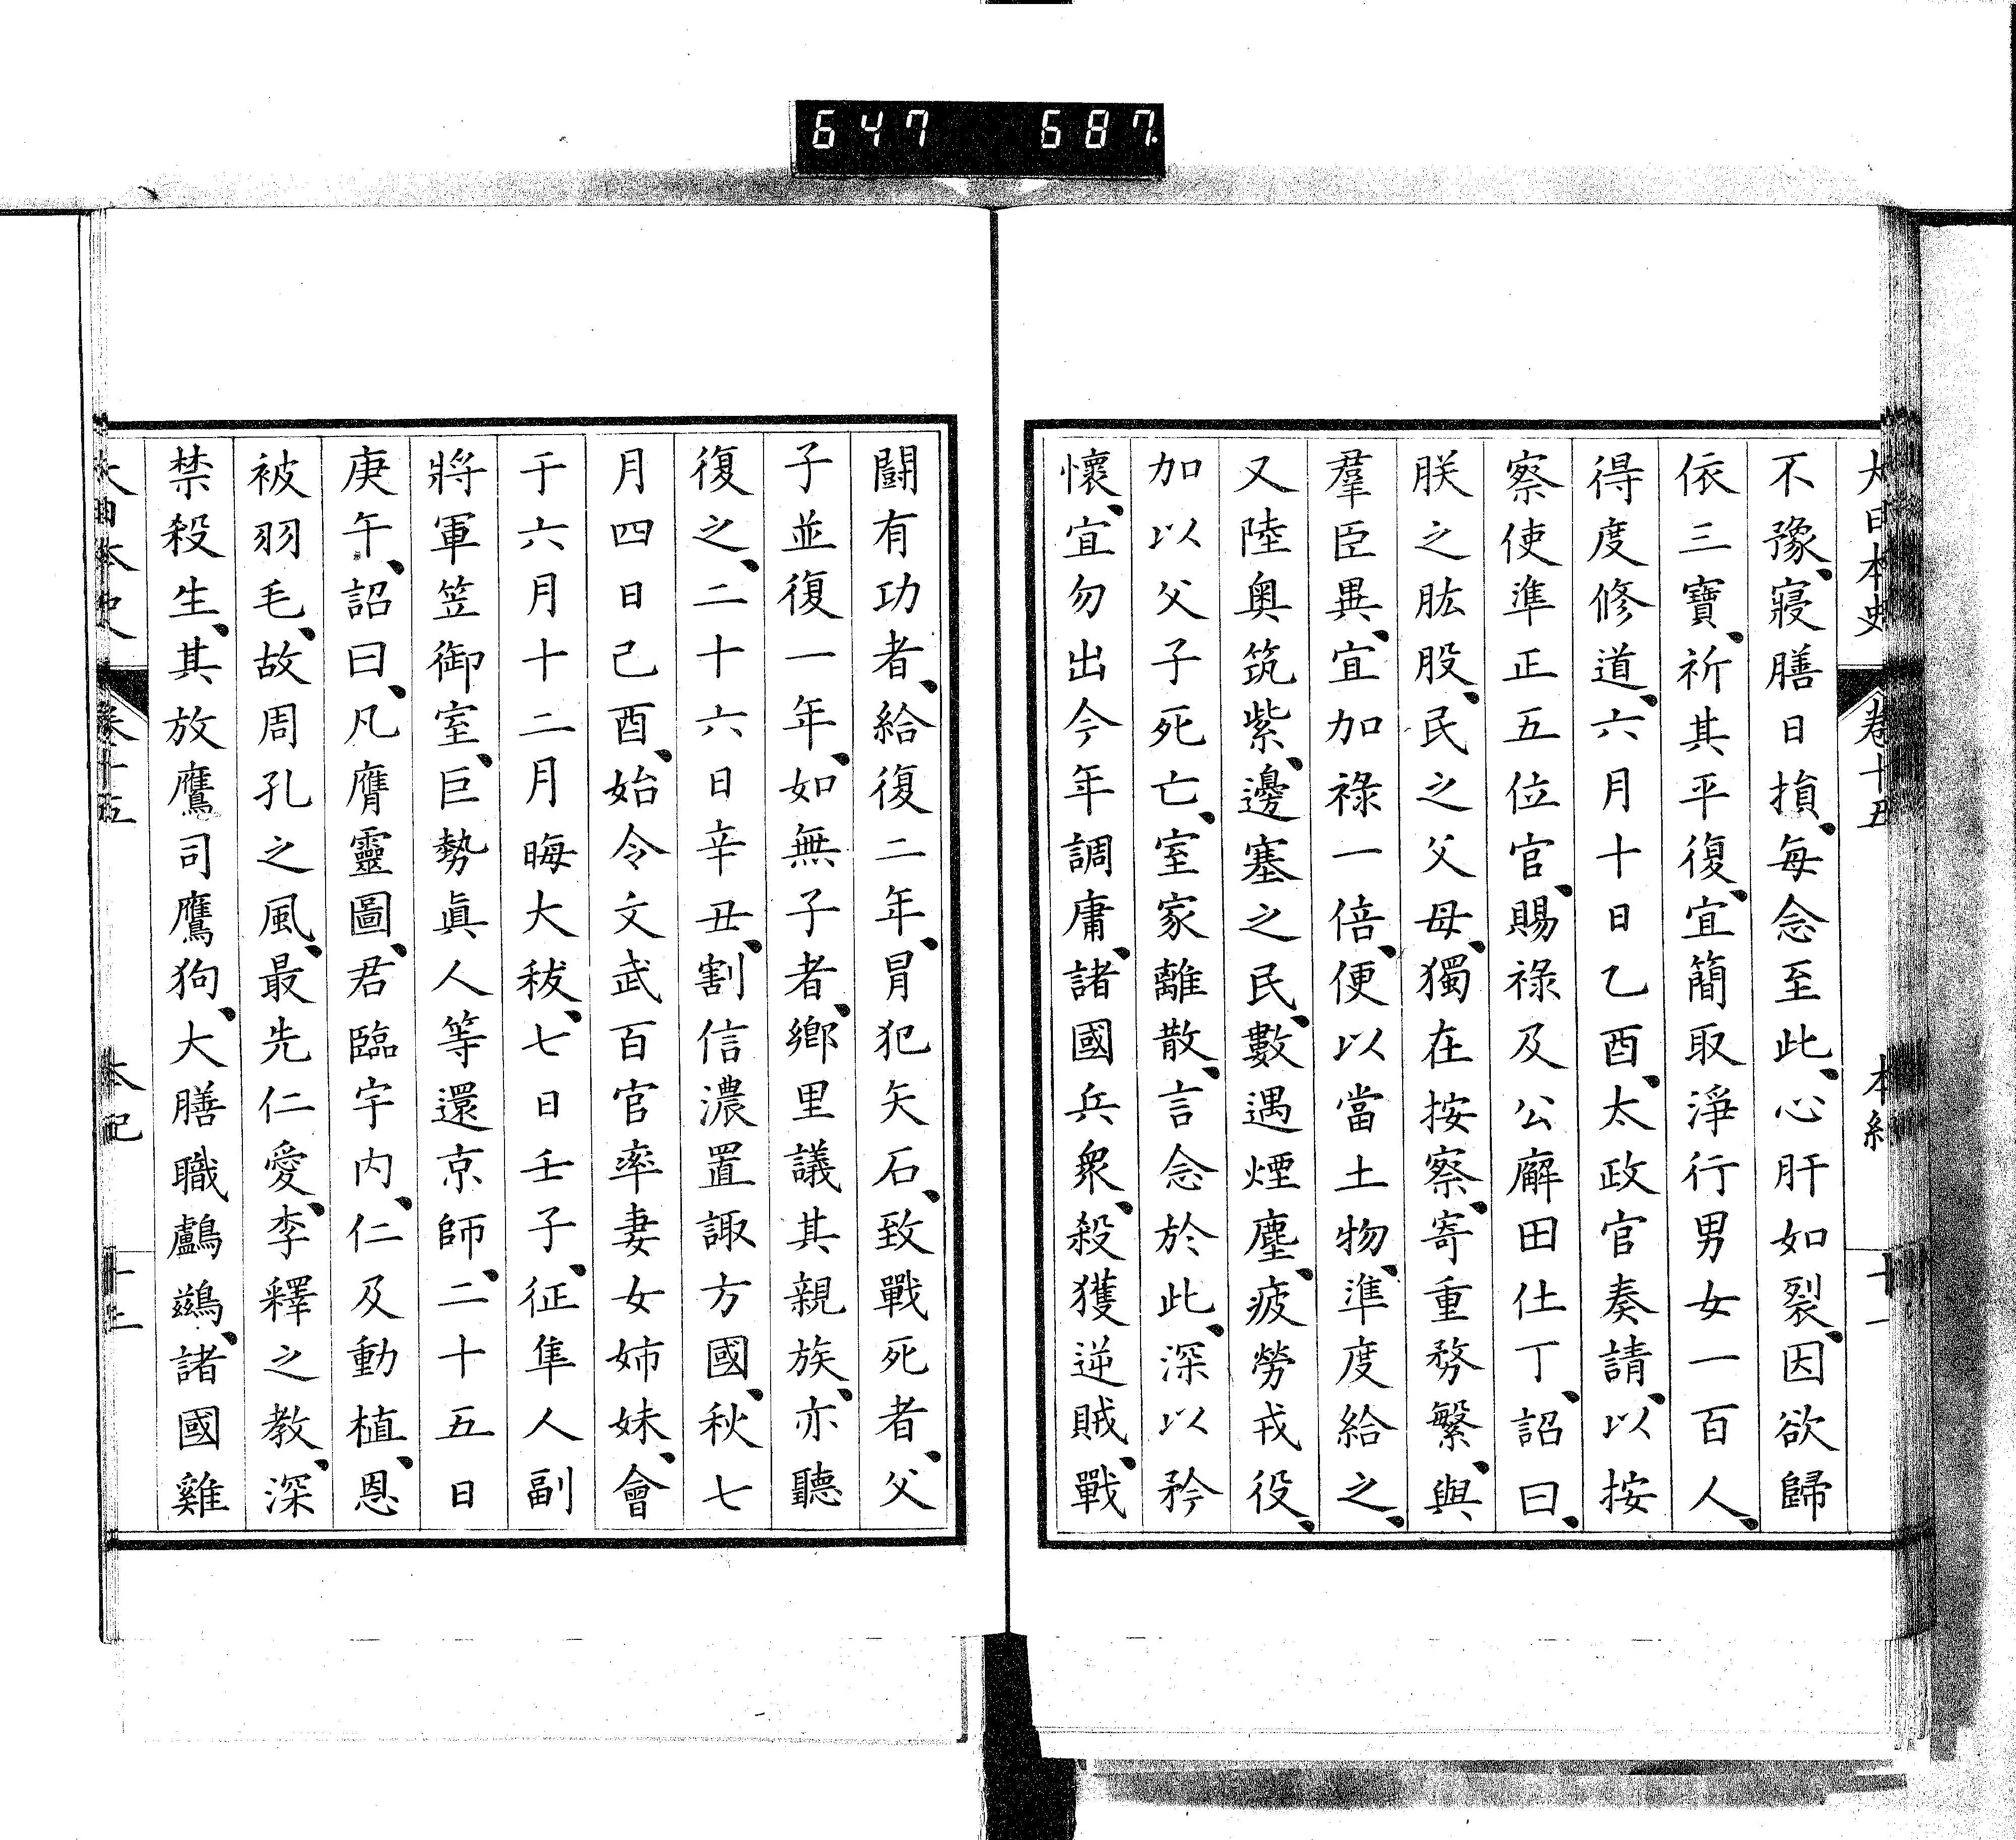 647 687
大日本史 卷十五 本紀 十一
不豫、寢膳日損、每念至此、心肝如裂、因欲歸
依三寶、祈其平復、宜簡取淨行男女一百人、
得度修道、六月十日乙酉、太政官奏請、以按
察使準正五位官、賜祿及公廨田仕丁、詔曰、
朕之肱股、民之父母、獨在按察、寄重務繁、與
羣臣異、宜加祿一倍、便以當土物、準度給之、
又陸奧筑紫、邊塞之民、數遇煙塵、疲勞戎役、
加以父子死亡、室家離散、言念於此、深以矜
懷、宜勿出今年調庸、諸國兵衆、殺獲逆賊、戰
鬪有功者、給復二年、冐犯矢石、致戰死者、父
子並復一年、如無子者、鄉里議其親族、亦聽
復之、二十六日辛丑、割信濃置諏方國、秋、七
月四日己酉、始令文武百官率妻女姉妹、會
于六月十二月晦大秡、七日壬子、征隼人副
將軍笠御室、巨勢眞人等還京師、二十五日
庚午、詔曰、凡膺靈圖、君臨宇内、仁及動植、恩
被羽毛、故周孔之風、最先仁愛、李釋之教、深
禁殺生、其放鷹司鷹狗、大膳職鸕鷀、諸國雞
大日本史 卷十五 本紀